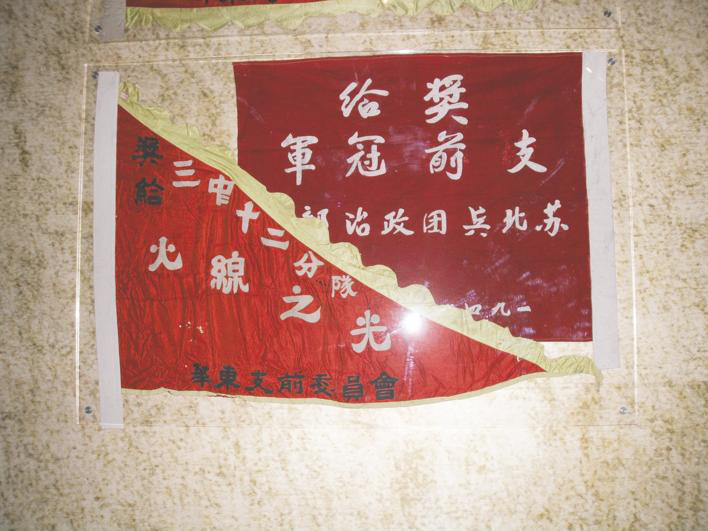 獎給
支前冠軍
苏北兵团政治部
一九四
獎給
三中十二分隊
火線之光
華東支前委員會